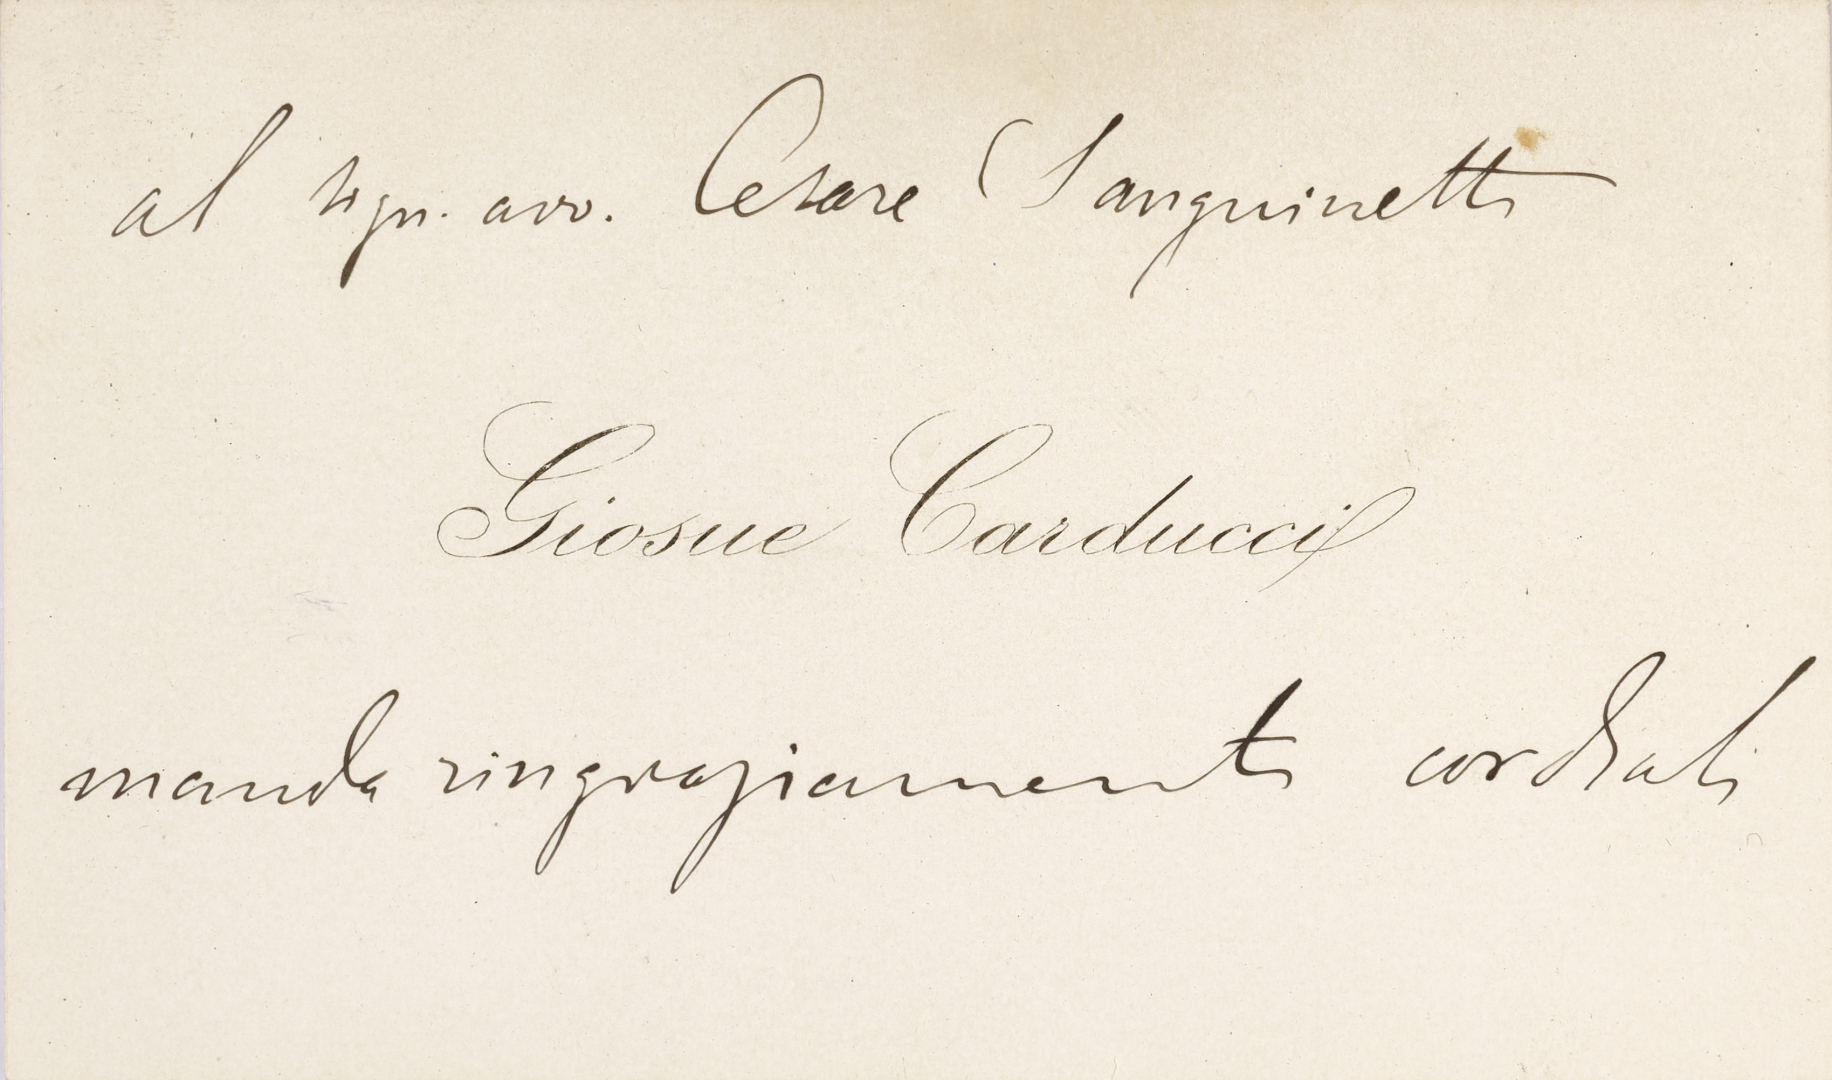 al sign. avv. Cesare Sanguinetti
Giosue Carducci
manda ringraziamenti cordiali